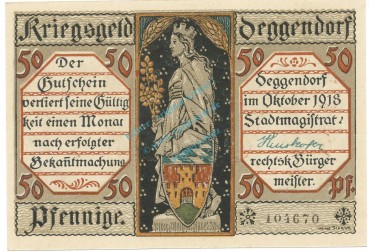 Kriegsgeld Deggendorf
50 50 50 50
Der
Gutschein
verliert seine Gültig
keit einen Monat
nach erfolgter
Bekantmachung
50 50
Pfennige.
Deggendorf
im Oktober 1918
Stadtmagistrat:
rechtsk. Bürger
meister.
50 50 Pf.
104670